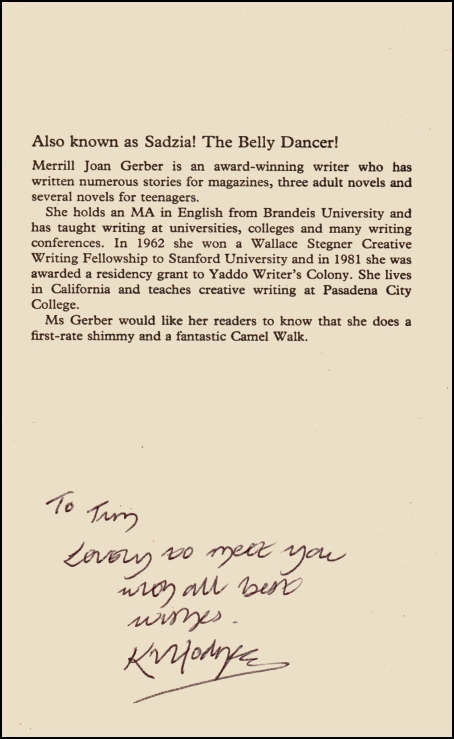 Also known as Sadzia! The Belly Dancer!
Merrill Joan Gerber is an award-winning writer who has
written numerous stories for magazines, three adult novels and
several novels for teenagers.
She holds an MA in English from Brandeis University and
has taught writing at universities, colleges and many writing
conferences. In 1962 she won a Wallace Stegner Creative
Writing Fellowship to Stanford University and in 1981 she was
awarded a residency grant to Yaddo Writer's Colony. She lives
in California and teaches creative writing at Pasadena City
College.
Ms Gerber would like her readers to know that she does a
first-rate shimmy and a fantastic Camel Walk.
To Tim
Lovely to meet you
with all best
wishes.